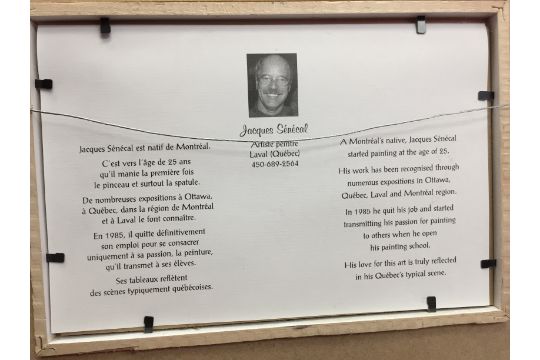 Jacques Sénécal
Artiste peintre
Laval (Québec)
450-689-2564
Jacques Sénécal est natif de Montréal.
C'est vers l'âge de 25 ans
qu'il manie la première fois
le pinceau et surtout la spatule.
De nombreuses expositions à Ottawa,
à Québec, dans la région de Montréal
et à Laval le font connaître.
En 1985, il quitte définitivement
son emploi pour se consacrer
uniquement à sa passion, la peinture,
qu'il transmet à ses élèves.
Ses tableaux reflètent
des scènes typiquement québécoises.
A Montréal's native, Jacques Sénécal
started painting at the age of 25.
His work has been recognised through
numerous expositions in Ottawa,
Québec, Laval and Montréal region.
In 1985 he quit his job and started
transmitting his passion for painting
to others when he open
his painting school.
His love for this art is truly reflected
in his Québec's typical scene.